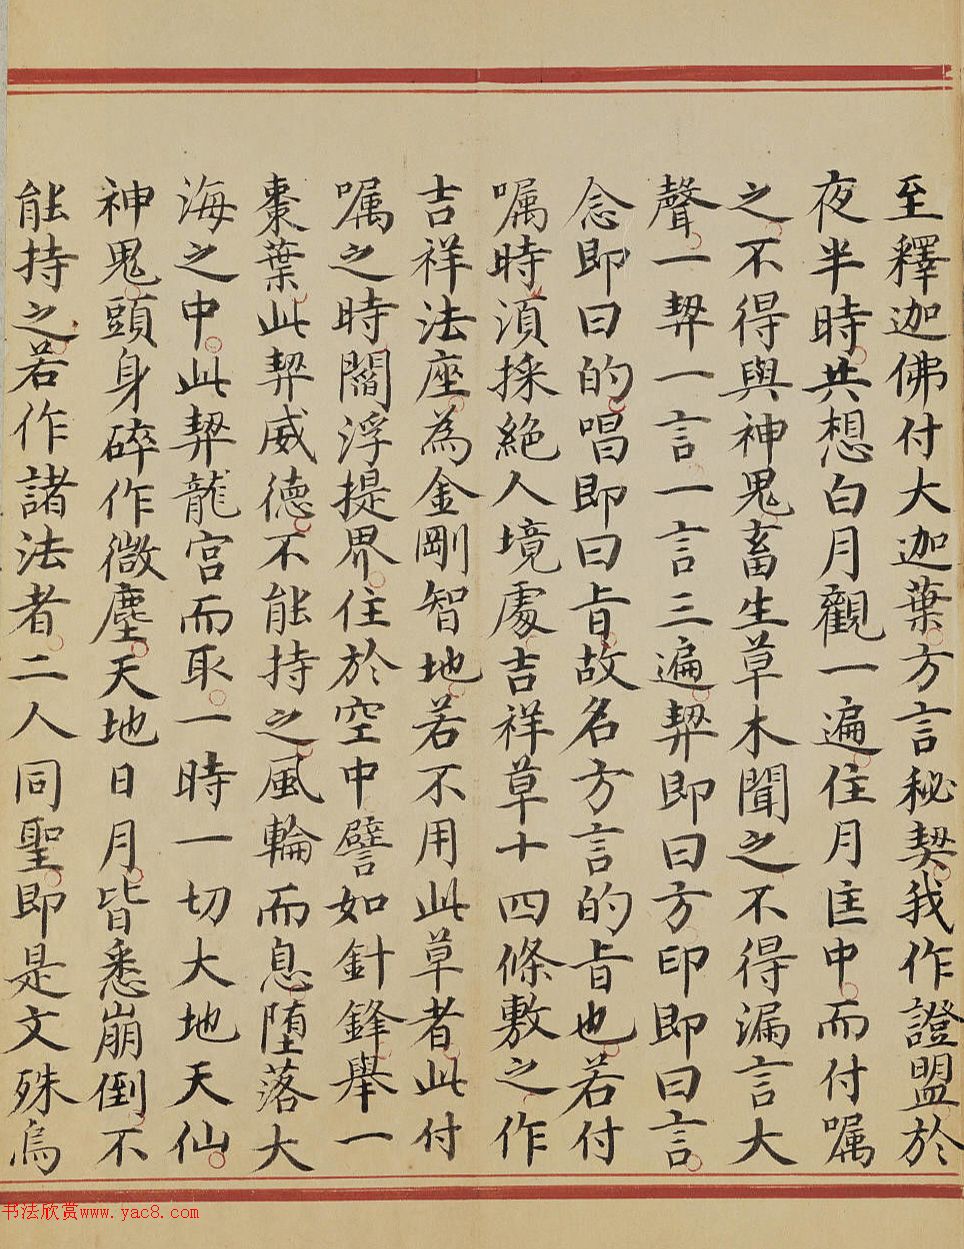 至釋迦佛付大迦葉方言秘契我作證盟於
夜半時共想白月觀一遍住月匡中而付嘱
之不得與神鬼畜生草木聞之不得漏言大
聲一契一言一言三遍契即曰方印即曰言
念即曰的唱即曰旨故名方言的旨也若付
嘱時須採絕人境處吉祥草十四條敷之作
吉祥法座為金剛智地若不用此草者此付
嘱之時閻浮提界住於空中譬如針鋒舉一
棗葉此契威德不能持之風輪而息堕落大
海之中此契龍宮而取一時一切大地天仙
神鬼頭身碎作微塵天地日月皆悉崩倒不
能持之若作諸法者二人同聖即是文殊烏
书法欣赏www.yac8.com